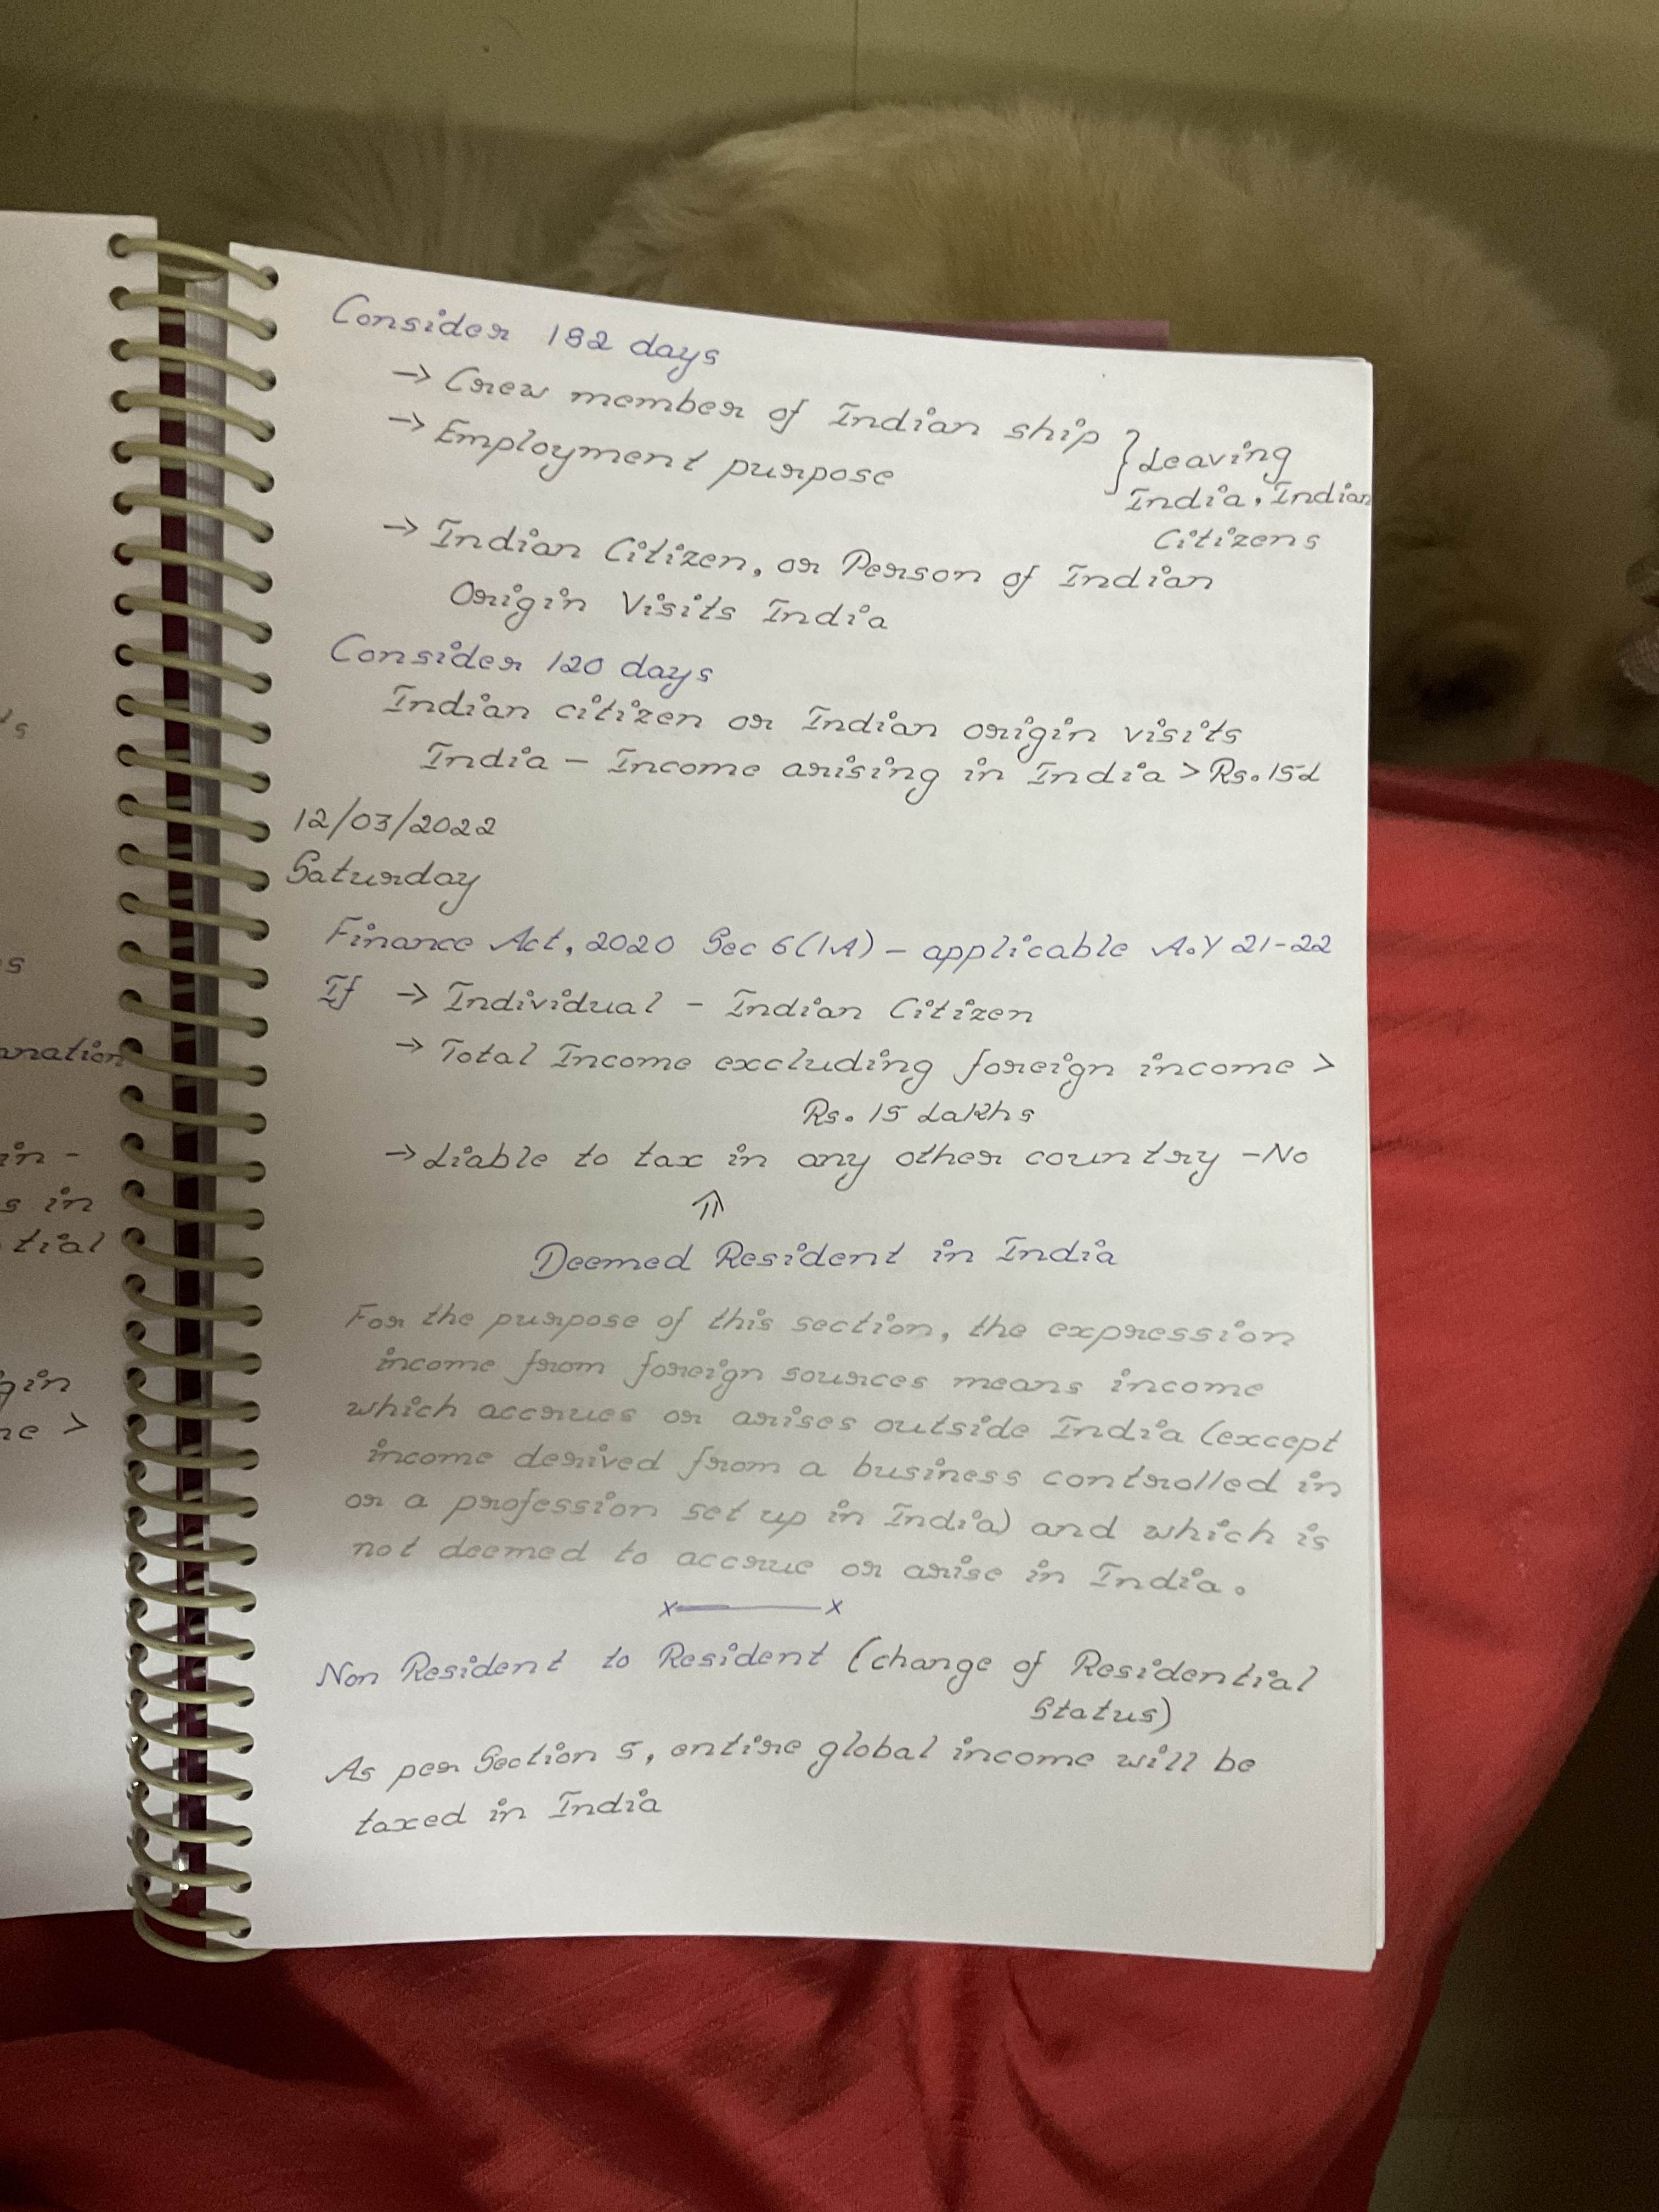 ts
s
anation
in -
s in
tial
gin
ne >
Consider 182 days
→ Crew member of Indian ship
→ Employment purpose
} Leaving
India, Indian
Citizens
→ Indian Citizen, or Person of Indian
Origin Visits India
Consider 120 days
Indian citizen or Indian origin visits
India - Income arising in India > Rs. 15L
12/03/2022
Saturday
Finance Act, 2020 Sec 6(1A) - applicable A.Y 21-22
If → Individual - Indian Citizen
→ Total Income excluding foreign income >
Rs. 15 Lakhs
→ Liable to tax in any other country - No
⇑
Deemed Resident in India
For the purpose of this section, the expression
income from foreign sources means income
which accrues or arises outside India (except
income derived from a business controlled in
or a profession set up in India) and which is
not deemed to accrue or arise in India.
x———x
Non Resident to Resident (change of Residential
Status)
As per Section 5, entire global income will be
taxed in India